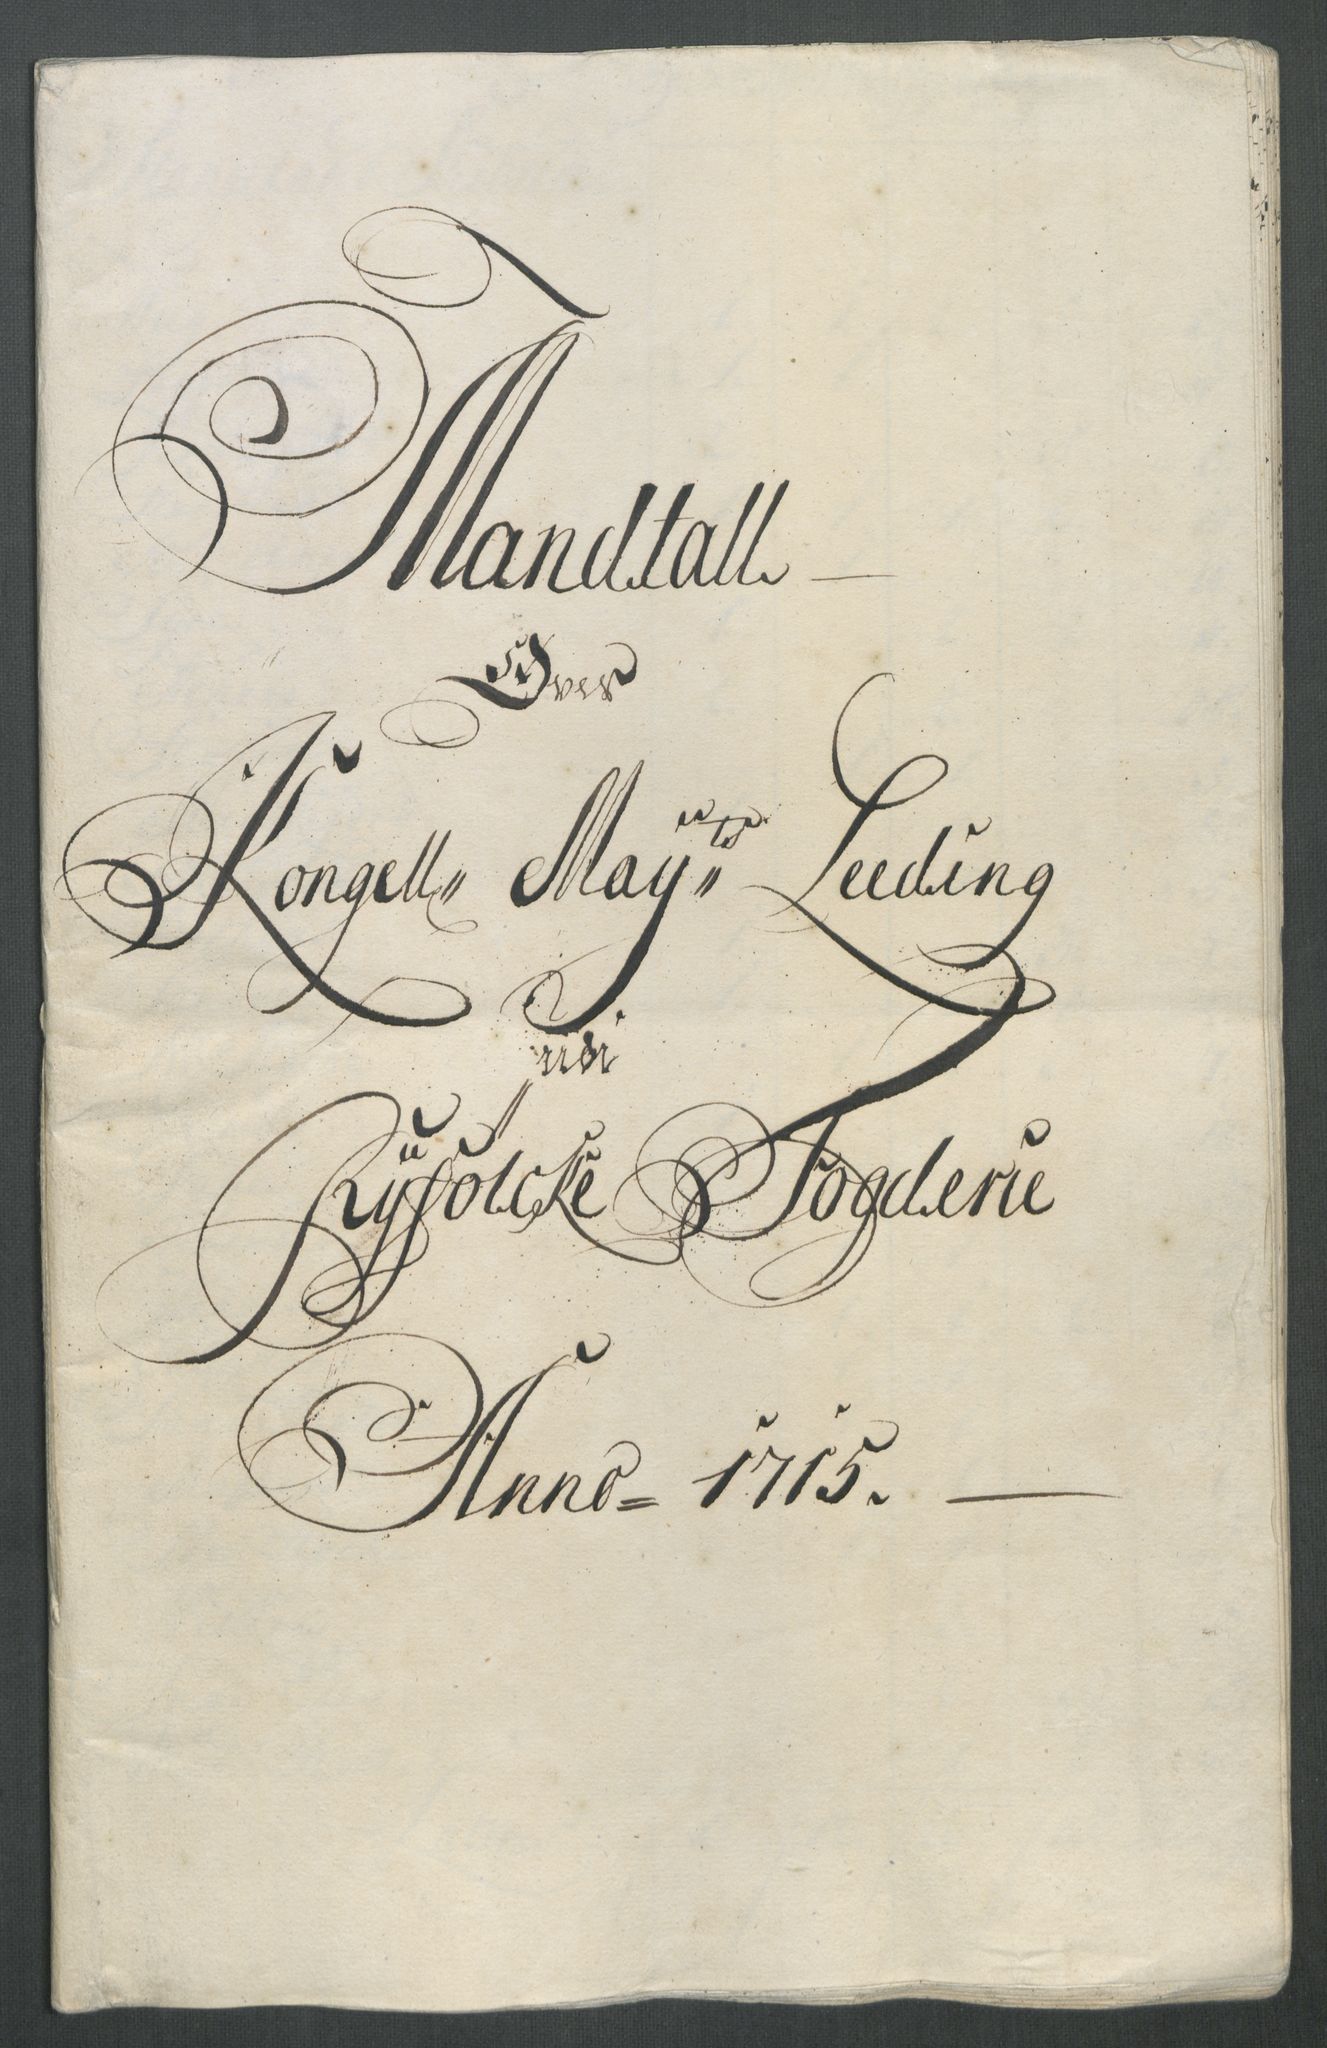 Mandtall
Over
Kongell Mayts Leeding
udi
Ryfölcke Fogderie
Anno 1715.